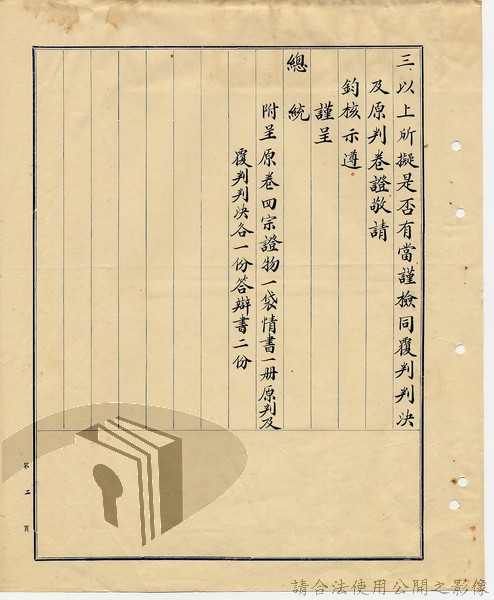 三、以上所擬是否有當謹檢同覆判判決
及原判卷證敬請
鈞核示遵
謹呈
總統
附呈原卷四宗證物一袋情書一冊原判及
覆判判決各一份答辯書二份
第二頁
請合法使用公開之影像